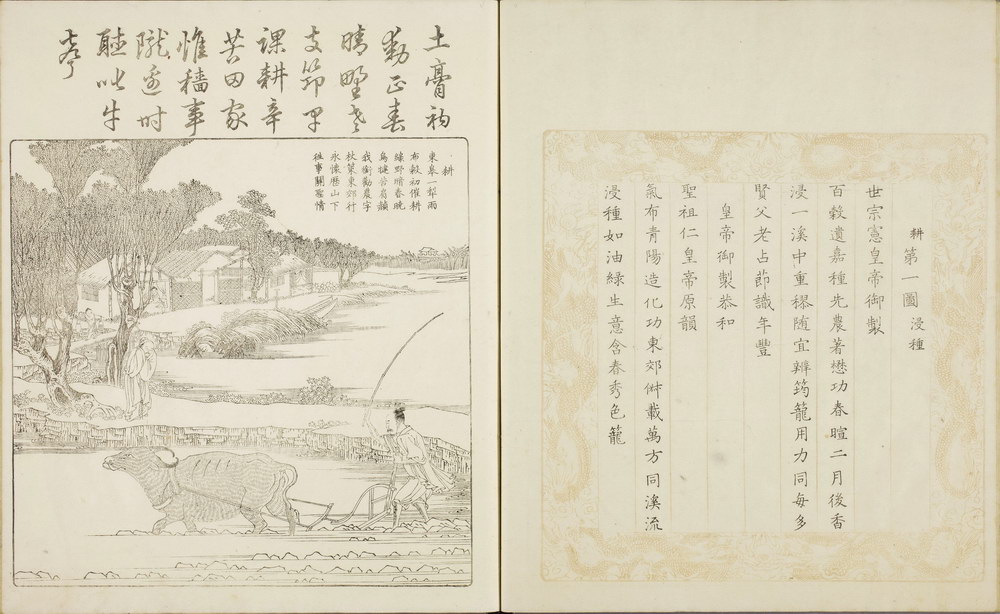 耕第一圖 浸種
世宗憲皇帝御製
百穀遺嘉種先農著懋功春暄二月後香
浸一溪中重穋隨宜辨筠籠用力同每多
賢父老占節識年豐
皇帝御製恭和
聖祖仁皇帝原韻
氣布青陽造化功東郊俶載萬方同溪流
浸種如油綠生意含春秀色籠
土膏初
動正春
晴野老
支筇早
課耕辛
苦田家
惟穡事
隴邊時
聽叱牛
聲
耕
東皋一犂雨
布穀初催耕
綠野暗春曉
烏犍苦肩赬
我銜勸農字
杖策東郊行
永懷歷山下
往事關聖情